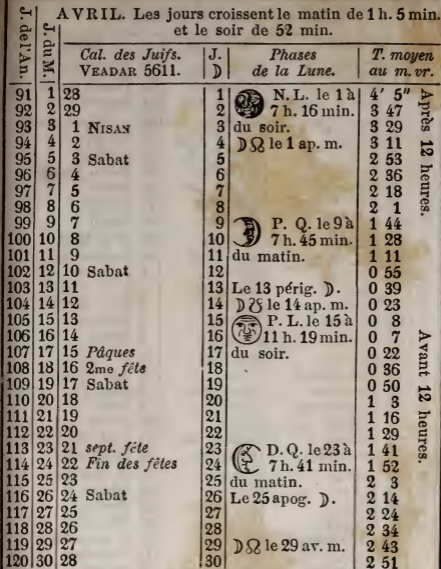 AVRIL. Les jours croissent le matin de 1 h. 5 min.
et le soir de 52 min.
J. de l'An. J. du M. Cal. des Juifs. VEADAR 5611. J. ☽ Phases de la Lune. T. moyen au m. vr.
91 1 28 1 N. L. le 1 à 4' 5"
92 2 29 2 7 h. 16 min. 3 47
93 3 1 NISAN 3 du soir. 3 29
94 4 2 4 ☽☊ le 1 ap. m. 3 11
95 5 3 Sabat 5 2 53
96 6 4 6 2 36
97 7 5 7 2 18
98 8 6 8 2 1
99 9 7 9 P. Q. le 9 à 1 44
100 10 8 10 7 h. 45 min. 1 28
101 11 9 11 du matin. 1 11
102 12 10 Sabat 12 0 55
103 13 11 13 Le 13 périg. ☽. 0 39
104 14 12 14 ☽☋ le 14 ap. m. 0 23
105 15 13 15 P. L. le 15 à 0 8
106 16 14 16 11 h. 19 min. 0 7
107 17 15 Pâques 17 du soir. 0 22
108 18 16 2me fête 18 0 36
109 19 17 Sabat 19 0 50
110 20 18 20 1 3
111 21 19 21 1 16
112 22 20 22 1 29
113 23 21 sept. fête 23 D. Q. le 23 à 1 41
114 24 22 Fin des fêtes 24 7 h. 41 min. 1 52
115 25 23 25 du matin. 2 3
116 26 24 Sabat 26 Le 25 apog. ☽. 2 14
117 27 25 27 2 24
118 28 26 28 2 34
119 29 27 29 ☽☊ le 29 av. m. 2 43
120 30 28 30 2 51
Après 12 heures.
Avant 12 heures.